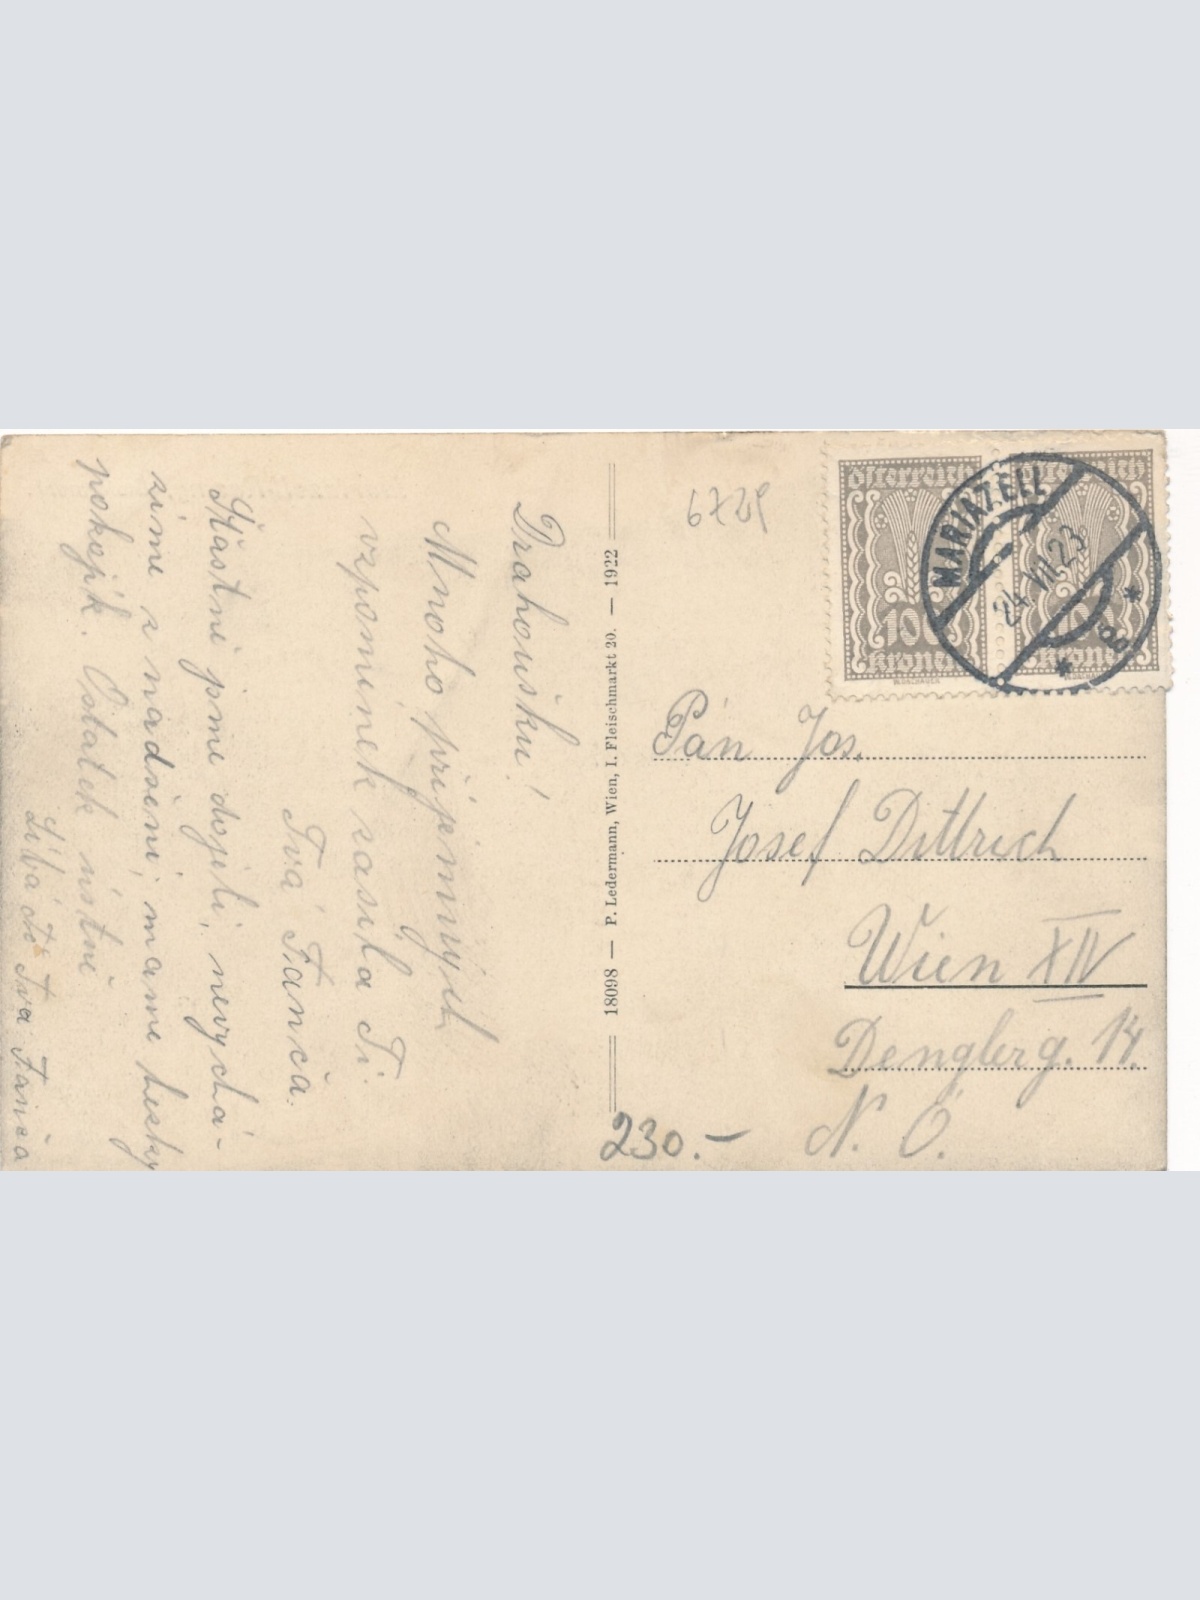 Drahoušku!
Mnoho příjemných
vzpomínek zasílá Ti
Tvá Fanča.
Šťastně jsme dojeli, nevychá-
zíme z nadšení, máme hezký
pokojík. Ostatek ústně
Líbá Tě Tvá Fanča
18098 — P. Ledermann, Wien, I. Fleischmarkt 20. — 1922
6729
Österreich
100
Kronen
Österreich
100
Kronen
MARIAZELL
24.VII.23
Pán Jos.
Josef Dittrich
Wien XIV
Denglerg. 14.
N. Ö.
230.—